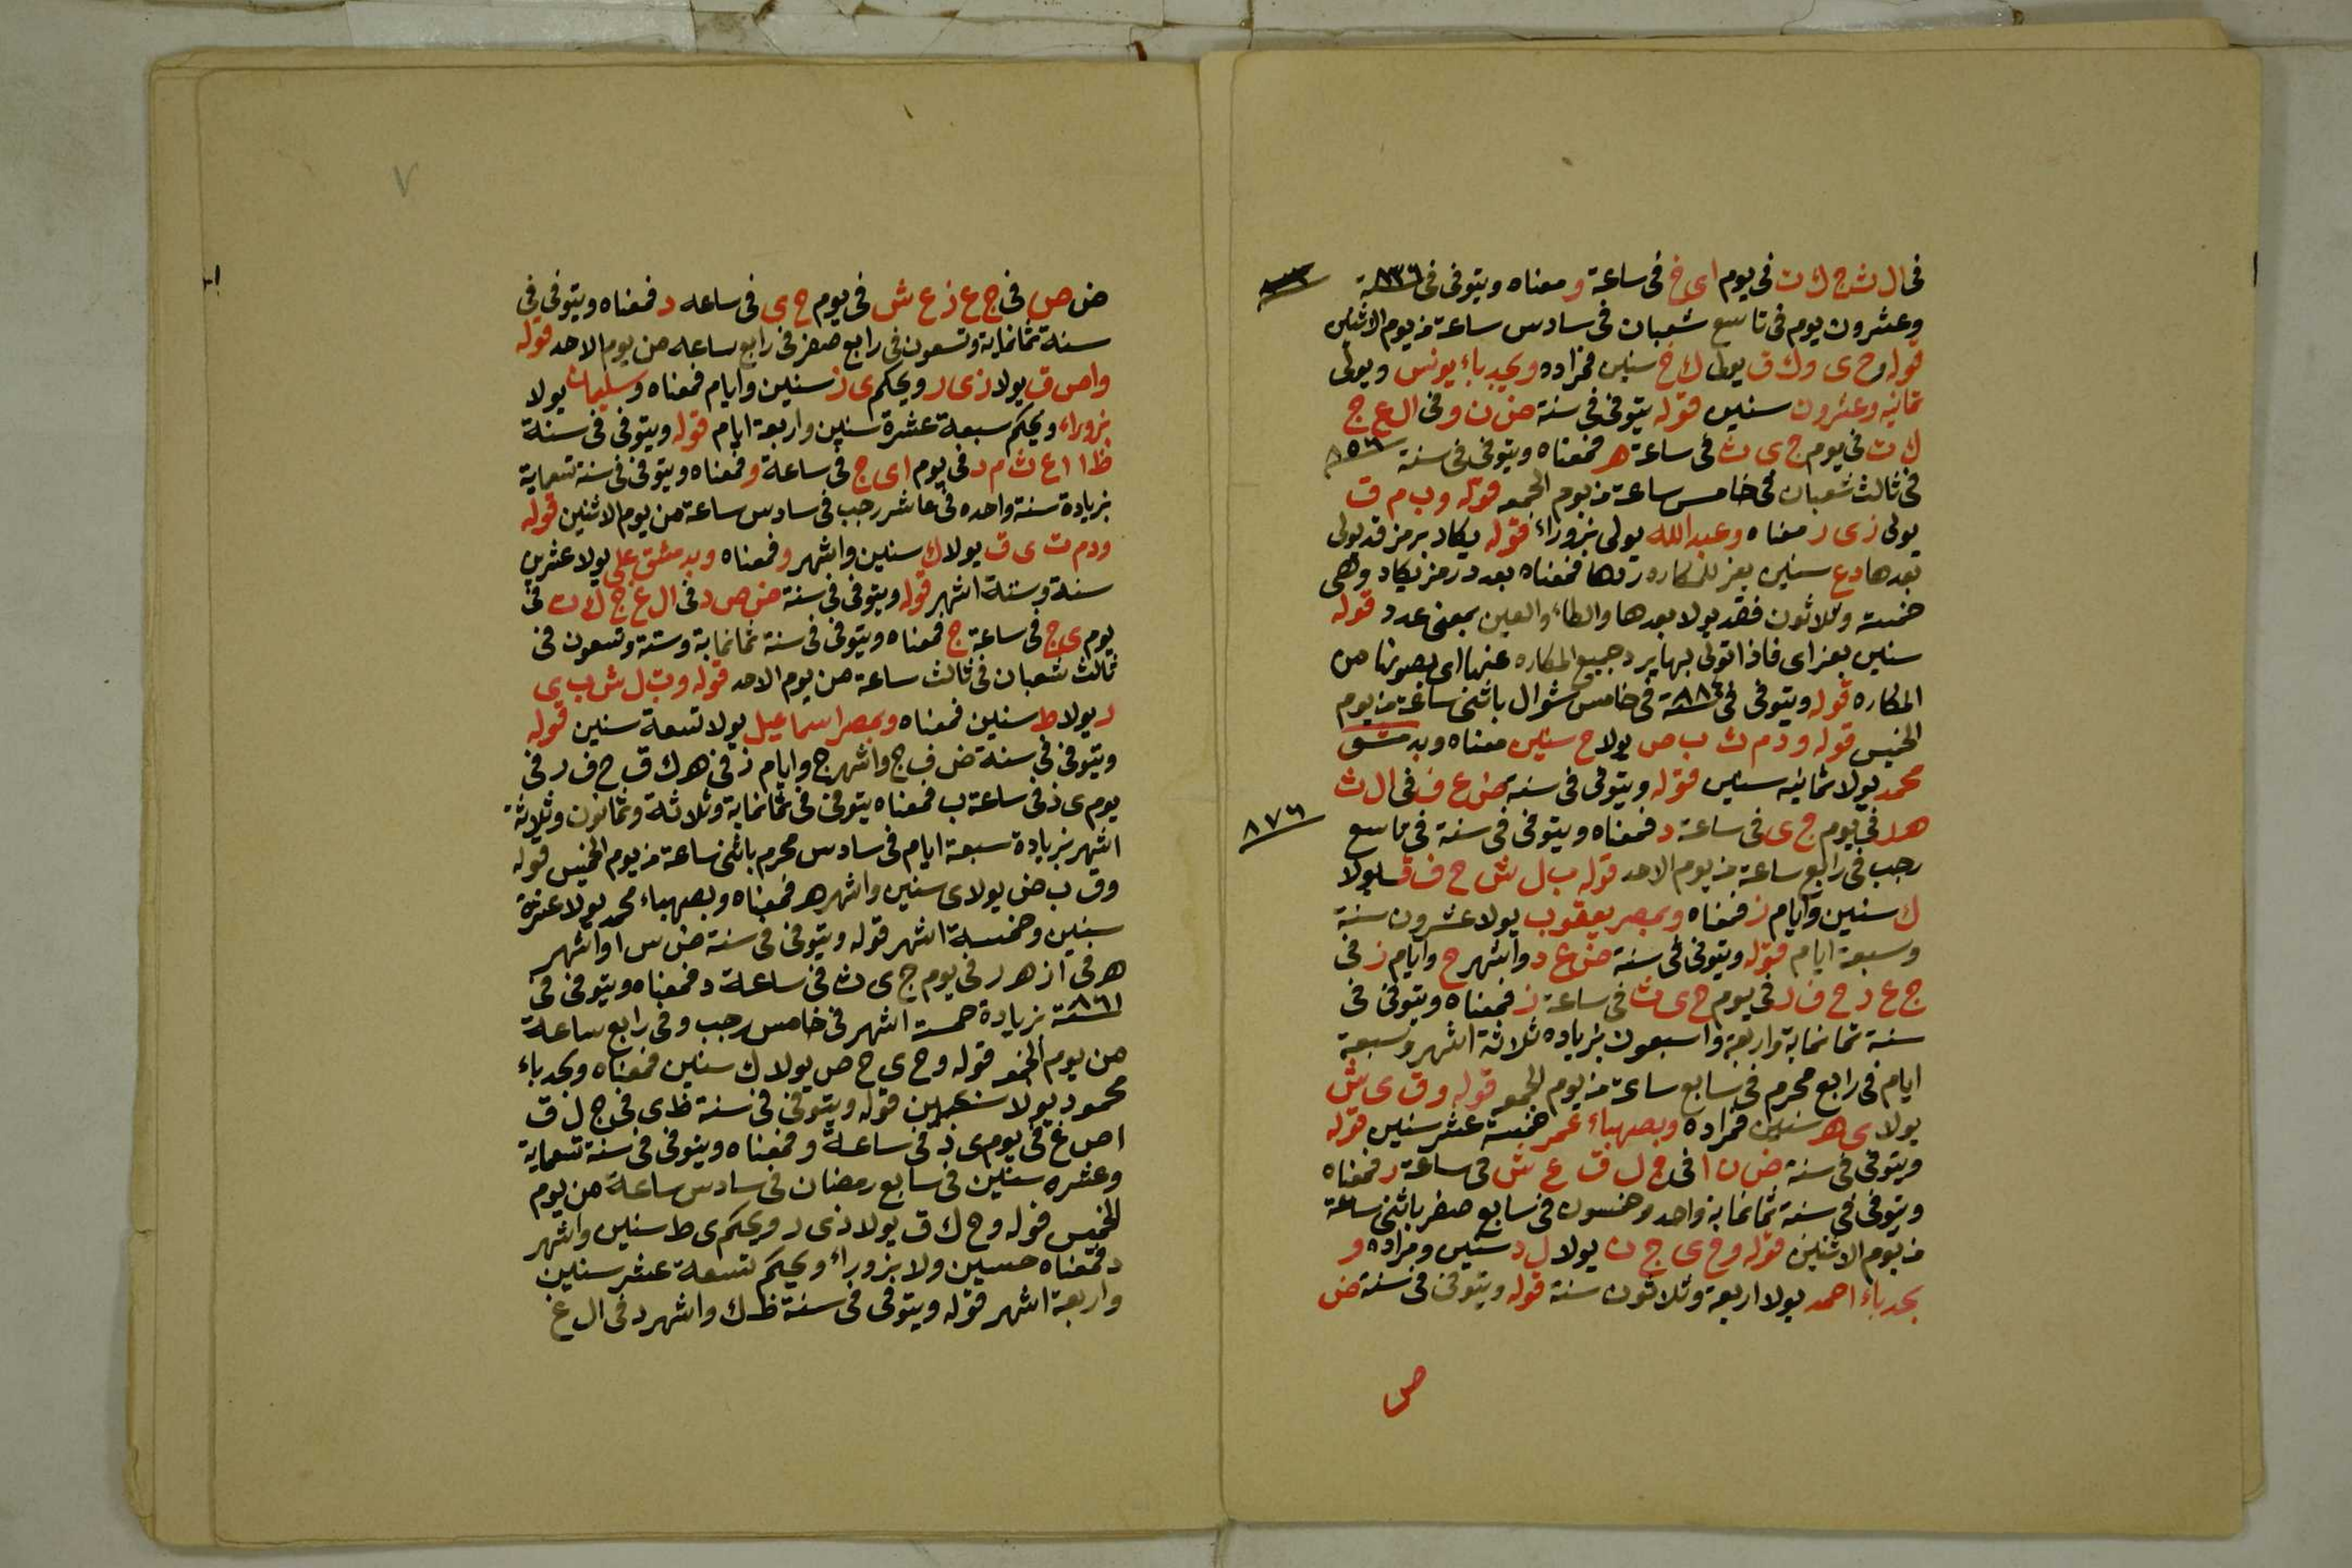 فى ال ش ج ك ت فى يوم اى خ فى ساعة و معناه ويتوفى فى ٨٣٦ سنة
وعشرون يوم فى تاسع شعبان فى سادس ساعة من يوم الاثنين
قوله وح ى وك ق يولى ك خ سنين فمراده وبجدباء يونس ويولى
ثمانية وعشرون سنين قوله يتوفى فى سنة ض ن و فى ال ع ج
ك ت فى يوم ج ى ث فى ساعة ه فمعناه ويتوفى فى سنة ٨٥٦
فى ثالث شعبان فى خامس ساعة من يوم الجمعه قوله وب م ق
يولى زى ر معناه وعبد الله يولى بزوراء قوله يكاد برمز قد يولى
بعدها دع سنين بعز للمكاره ردها فمعناه بعد درمز يكاد وهى
خمسة وثلاثون فقد يولا بعدها والطاء والعين بمعنى عدد قوله
سنين بعز اى فاذا تولى بها يرد جميع المكاره عنها اى يصونها من
المكاره قوله ويتوفى فى سنة ٨٨٤ فى خامس شوال باثنى ساعة من يوم
الخميس قوله ودم ث ب ص يولا ح سنين معناه وبدمشق
محمد يولا ثمانية سنين قوله ويتوفى فى سنة ض ع ف فى ال ث
ه د فى يوم ج ى فى ساعة د فمعناه ويتوفى فى سنة فى تاسع
٨٧٦
رجب فى رابع ساعة من يوم الاحد قوله ب ل ش ح ف ق يولا
ك سنين وايام ز فمعناه وبمصر يعقوب يولا عشرون سنة
وسبعة ايام قوله ويتوفى فى سنة ض ع د واشهر ج وايام ز فى
ج ع د ح ف ر فى يوم ح ى ث فى ساعة ز فمعناه ويتوفى فى
سنة ثمانماية واربعة واسبعون بزياده ثلاثة اشهر وسبعة
ايام فى رابع محرم فى سابع ساعة من يوم الجمعه قوله وق ى ش
يولا ى ه سنين فمراده وبصهباء عمر خمسة عشر سنين قوله
ويتوفى فى سنة ض ن ا فى ج ل ق ع ش فى ساعة ر فمعناه
ويتوفى فى سنة ثمانماية واحد وخمسون فى سابع صفر باثنى ساعة
من يوم الاثنين قوله وح ى ج ن يولا ل د سنين ومراده و
بجدباء احمد يولا اربعة وثلاثون سنة قوله ويتوفى فى سنة ض
ص
٧
ض ص فى ج ع ز ع ش فى يوم ج ى فى ساعه د فمعناه ويتوفى فى
سنة ثمانماية وتسعون فى رابع صفر فى رابع ساعه من يوم الاحد قوله
واص ق يولا زى ر ويحكم ى ز سنين وايام فمعناه وسليمان يولا
بزوراء ويحكم سبعة عشرة سنين واربعة ايام قوله ويتوفى فى سنة
ظ ا ا ع ث م د فى يوم اى ج فى ساعة و فمعناه ويتوفى فى سنة تسعماية
بزيادة سنة واحده فى عاشر رجب فى سادس ساعة من يوم الاثنين قوله
ودم ت ى ق يولا ك سنين واشهر و فمعناه وبدمشق على يولا عشرين
سنة وستة اشهر قوله ويتوفى فى سنة ض ص د فى ال ع ج ك ن فى
يوم ى ج فى ساعة ج فمعناه ويتوفى فى سنة ثمانماية وستة وتسعون فى
ثالث شعبان فى ثالث ساعة من يوم الاحد قوله وب ل ش ب ى
ر يولا ط سنين فمعناه وبمصر اسماعيل يولا تسعة سنين قوله
ويتوفى فى سنة ض ف ج واشهر ج وايام ز فى ه ك ق ح ف ر فى
يوم ى ذ فى ساعة ب فمعناه يتوفى فى ثمانماية وثلاثة وثمانون وثلاثة
اشهر بزيادة سبعة ايام فى سادس محرم باثنى ساعة من يوم الخميس قوله
وق ب ض يولا ى سنين واشهر ه فمعناه وبصهباء محمد يولا عشرة
سنين وخمسة اشهر قوله ويتوفى فى سنة ض س ا واشهر
ه فى ا ز ه ر فى يوم ج ى ث فى ساعة د فمعناه ويتوفى فى
٨٦١ سنة بزيادة خمسة اشهر فى خامس رجب وفى رابع ساعة
من يوم الجمعه قوله وح ى ح ص يولا ك سنين فمعناه وبجدباء
محمود يولا سنين قوله ويتوفى فى سنة ظ ى فى ج ل ق
ا ص غ فى يوم ى ذ فى ساعة و فمعناه ويتوفى فى سنة تسعماية
وعشره سنين فى سابع رمضان فى سادس ساعة من يوم
الخميس قوله وح ك ق يولا زى ر ويحكم ى ط سنين واشهر
د فمعناه حسين ولا بزوراء ويحكم تسعة عشر سنين
واربعة اشهر قوله ويتوفى فى سنة ظ ك واشهر د فى ال غ